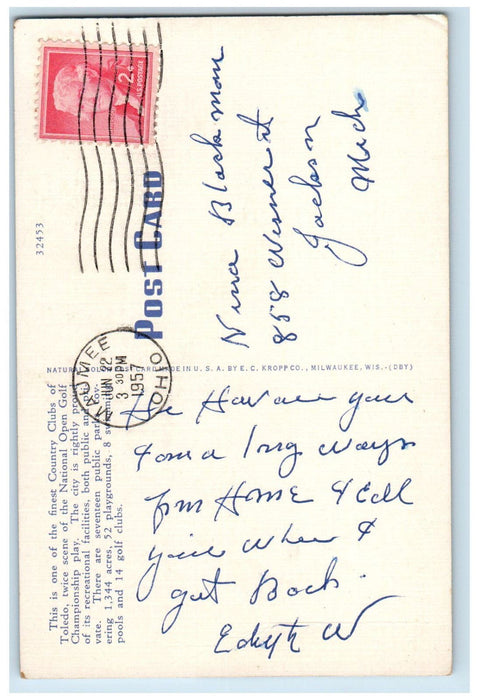 2¢
JEFFERSON
MAUMEE
JUN 22
3 30 PM
1957
OHIO
32453
POST CARD
Nina Blackman
858 Wisner st
Jackson
Mich
NATURAL COLOR POST CARD MADE IN U. S. A. BY E. C. KROPP CO., MILWAUKEE, WIS.-(DBY)
This is one of the finest Country Clubs of
Toledo, twice scene of the National Open Golf
Championship play. The city is rightly proud
of its recreational facilities, both public and pri-
vate. There are seventeen public parks cov-
ering 1,344 acres, 52 playgrounds, 8 swimming
pools and 14 golf clubs.
Hi How are you
a long ways
from Home
you when I
get Back.
Edyth W